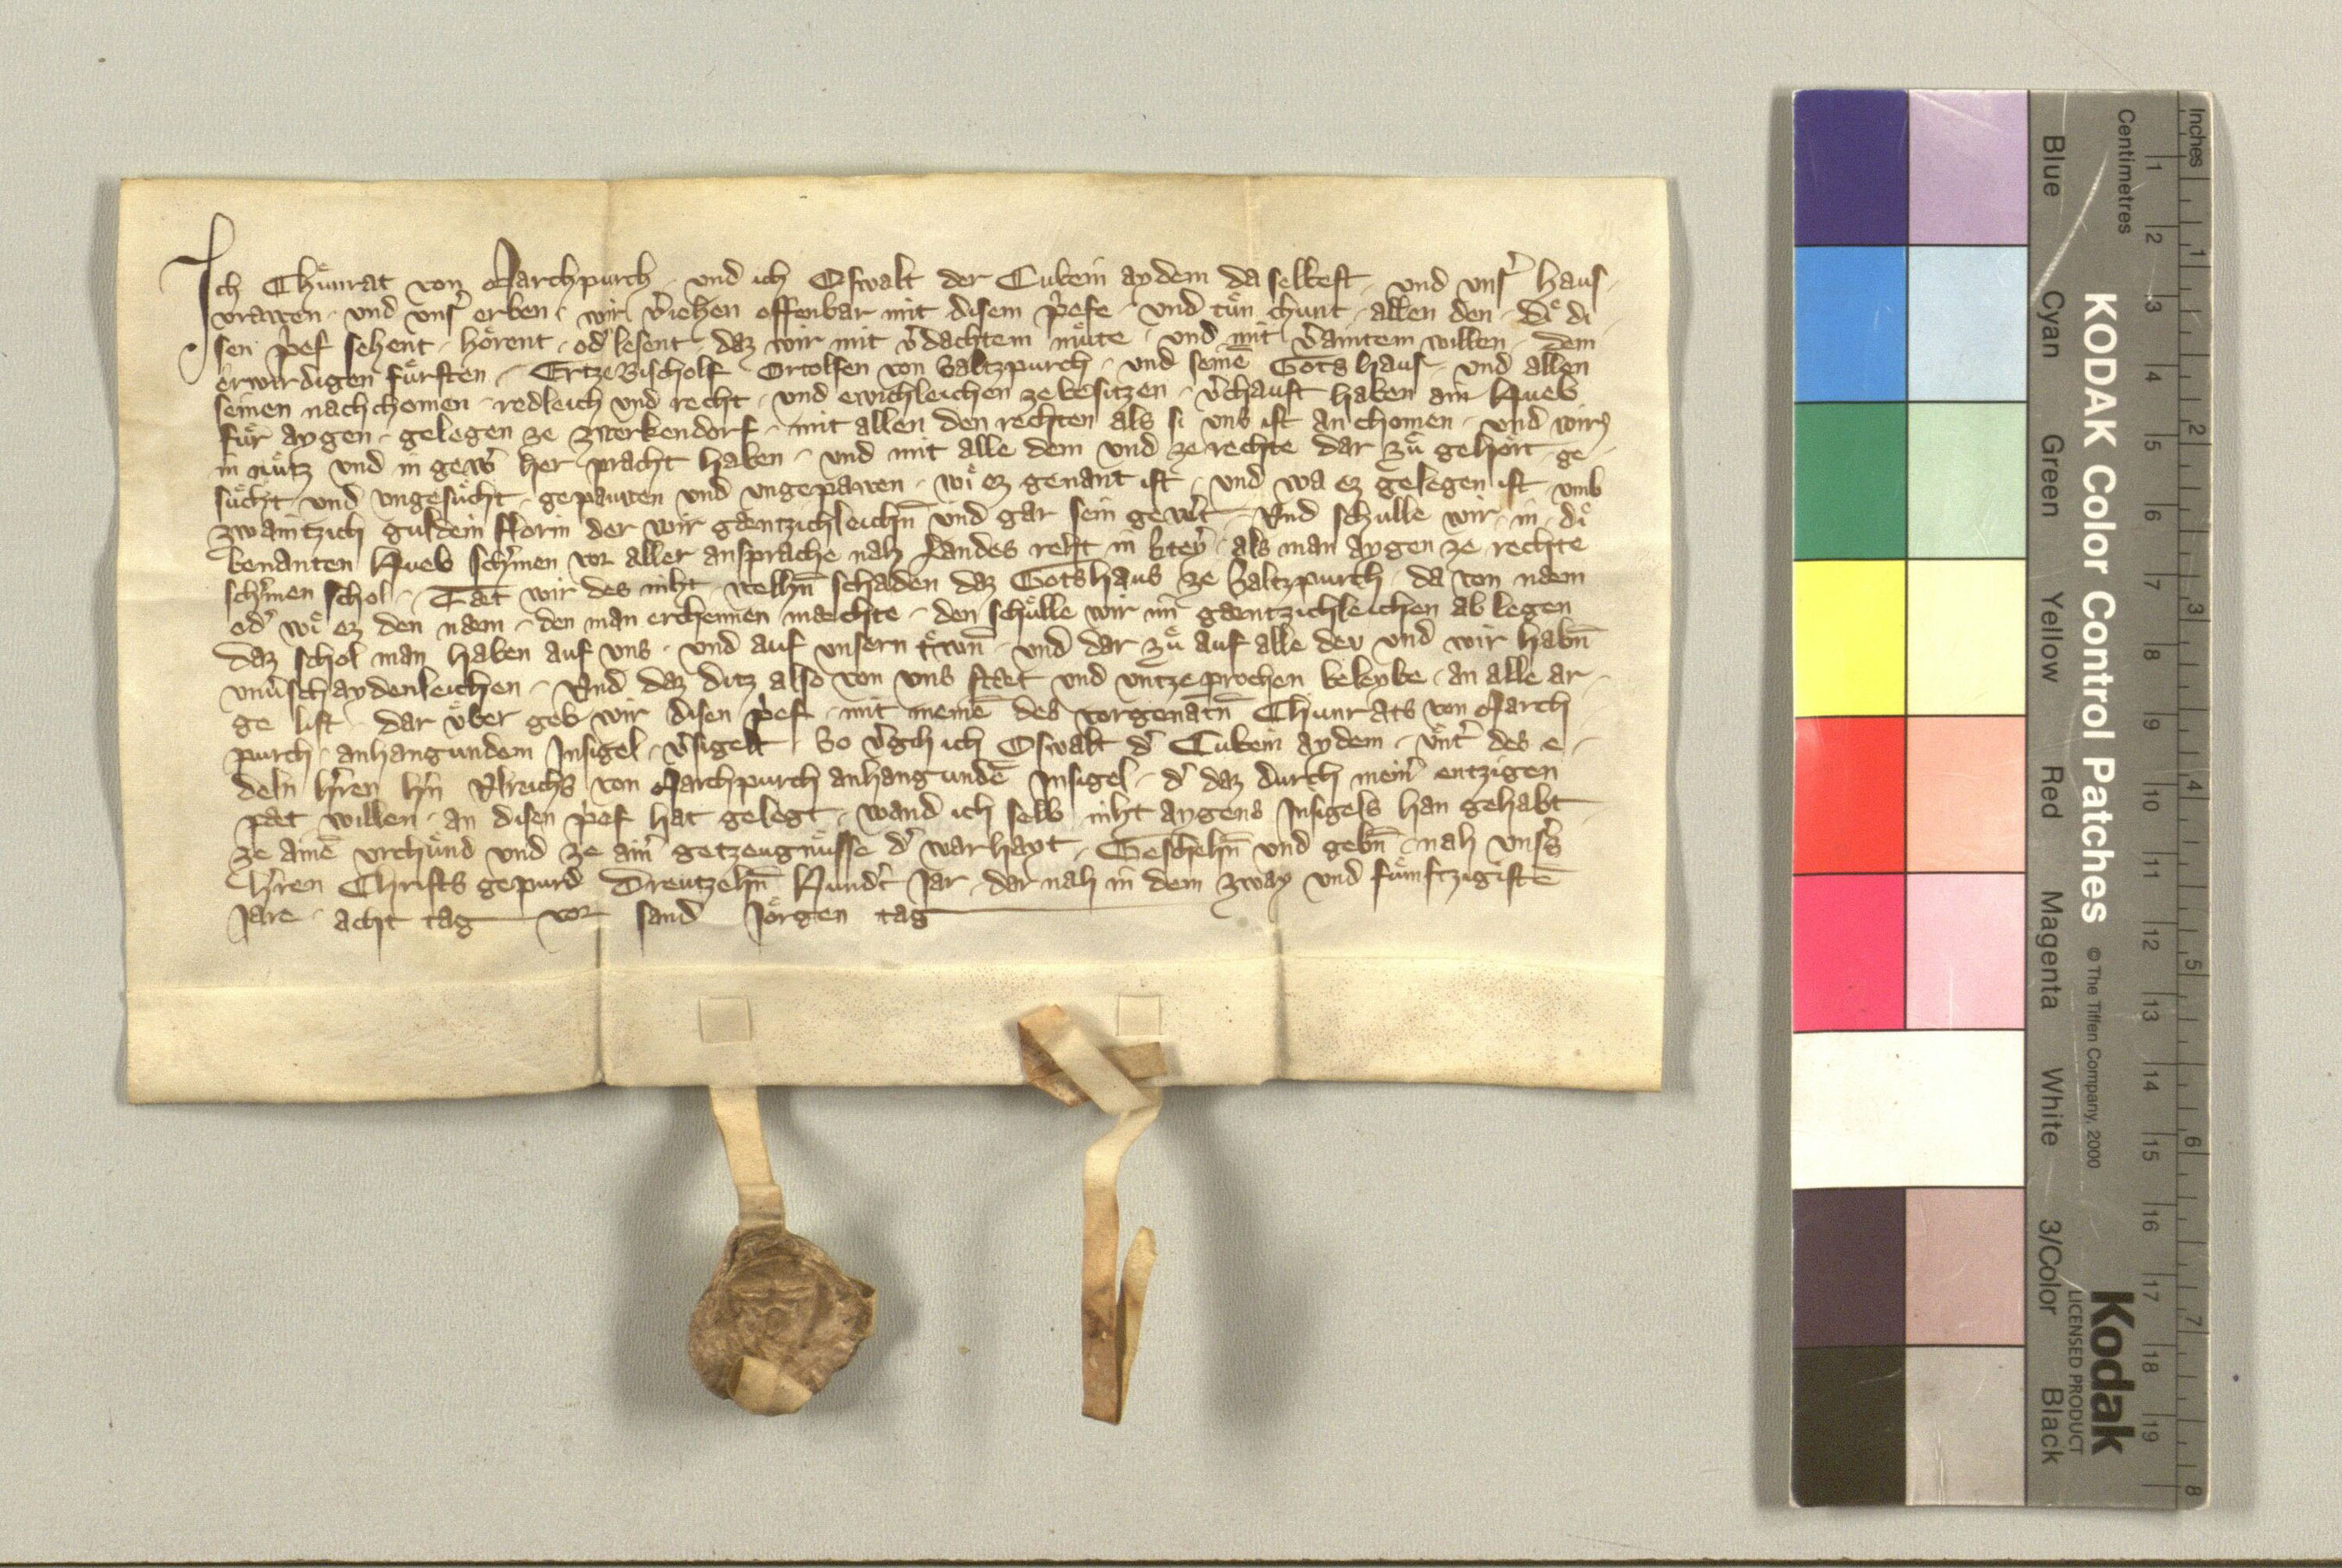 Ich Chuͤnrat von Marchpurch · und ich Oswalt der Cukein aydem da selbest · und vnsˀ haus
vrawen · und vnsˀ erben · wir vˀiehen offenbar mit disem prˀefe · und tuͤn chunt · allen den · diͤ di
sen prˀef sehent · hoͤrent · odˀ lesent · daz wir mit vˀdachtem muͤte · und mit vˀaintem willen · dem
erwirdigen fuͤrsten · Ertzebischolf Ortolfen von Saltzpurch · und seinē Gotshaus · und allen
seinen nachchomen · redleich und recht · und ewichleichen ze besitzen · vˀchauft haben ain Hueb
fuͤr aygen · gelegen ze Zwerkendorf · mit allen den rechten als si uns ist an chomen · und wirs
in nuͤtz und in gewˀ her pracht haben · und mit alle dem und ze rechte dar zuͤ gehoͤrt · ge
suͤcht und vngesuͤcht · gepauwen und vngepawen · wiͤ ez genant ist · und wa ez gelegen ist · vmb
zwaintzich guldein florin der wir gaentzichleichn̄ und gar sein gewˀt · Und schulle wir · in · diͤ
benanten Hueb schˀmen vor aller ansprache nah Landes reht in · als man aygen ze rechte
schˀmen schol · Taet wir des niht · welhn̄ schaden daz Gotshaus ze Saltzpurch · da von naem
odˀ wiͤ ez den naem · den man erchennen maechte · den schuͤlle wir im gaentzichleichen ab legen
Daz schol man haben auf vns · und auf vnsern trˀwn̄ · und dar zuͤ auf alle dev und wir habn̄
vnuˀschaydenleichen · Und daz ditz also von vns staet und vntzeprochen beleybe · an alle ar
ge list · dar vͤber geb wir disen prˀef · mit meinē des vorgenatn̄ Chunrats von March
purch · anhangundem Insigel · vˀsigelt · So vˀgich ich Oswalt dˀ Cukein aydem · vͤntˀ des e
deln hˀren hˀn Ulreichs von Marchpurch anhangundē Insigel · dˀ daz durch meinˀ entzigen
paet willen · an disen prˀef hat gelegt · wand ich selb niht aygens Insigels han gehabt
ze ainē vrchuͤnd und ze ainˀ getzeugnuͤsse dˀ warhayt · Geschehn̄ und gebn̄ · nah vnsˀs
hˀren Christs gepurd Dreutzehn̄ Hundˀt Jar · dar nah in dem zway und fuͤnftzigistē
Jare · acht tag vor sand Joͤrgen tag
KODAK Color Control Patches © The Tiffen Company, 2000
Kodak
LICENSED PRODUCT
Inches 1 2 3 4 5 6 7 8
Centimetres 1 2 3 4 5 6 7 8 9 10 11 12 13 14 15 16 17 18 19
Blue Cyan Green Yellow Red Magenta White 3/Color Black